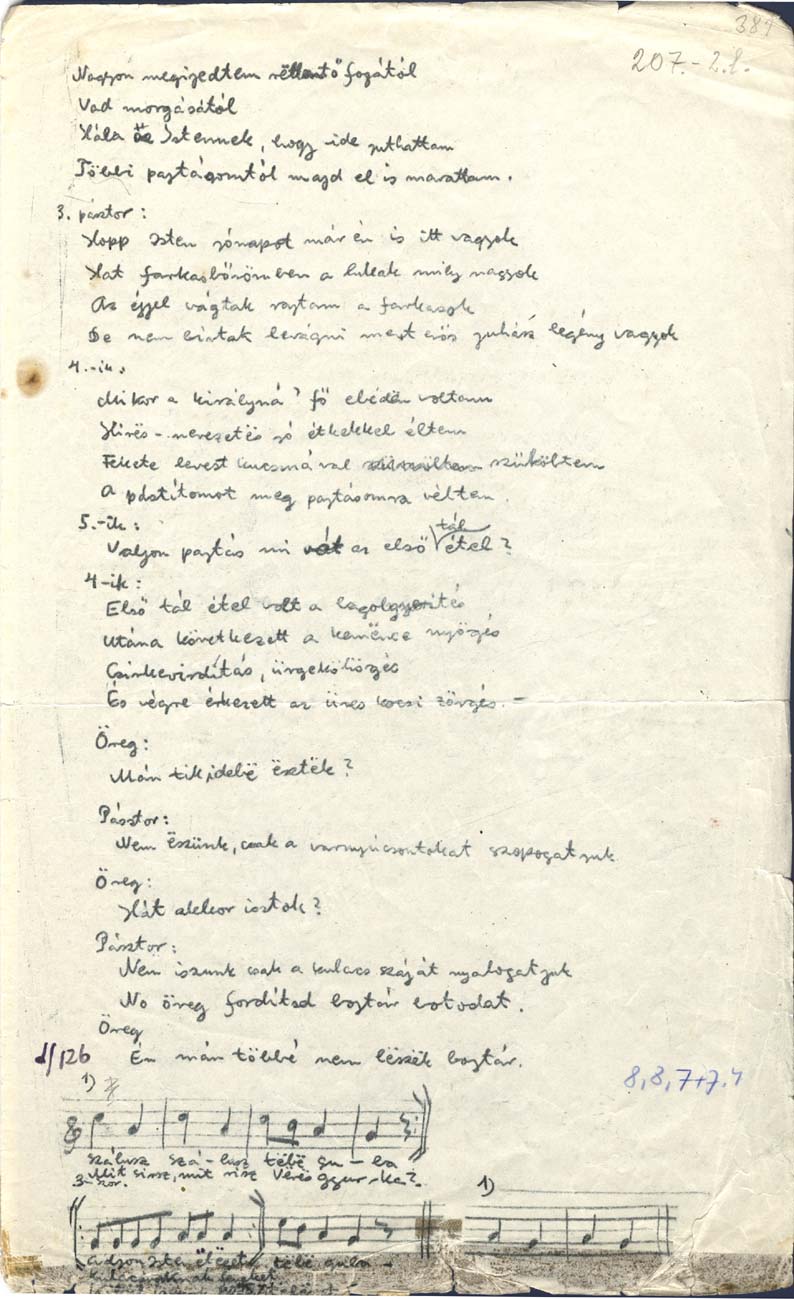 381
207.-2.l.
Nagyon megijedtem rëttentő fogától
Vad morgásától
Hála Istennek, hogy ide juthattam
Többi pajtásomtól majd el is marattam.
3. pásztor:
Hopp Isten jónapot már én is itt vagyok
Hat farkasbőrömben a lukak mily nagyok
Az éjjel vágtak rajtam a farkasok
De nem birtak levágni mert erős juhász legény vagyok
4.-ik:
Mikor a királyná' fő ebédën voltam
Hirës-nevezetës jó étkekkel éltem
Fekete levest kucsmával szüköltem
A pástítomot meg pajtásomra véltem.
5.-ik:
Valjon pajtás mi vót az első tál étel?
4-ik:
Első tál étel volt a
Utána következett a kemënce nyögés
Csirkevirdítás, ürgeköhögés
És végre érkezett az üres kocsi zörgés.-
Öreg:
Mán tik idebë ësztëk?
Pásztor:
Nem ëszünk, csak a varnyúcsontokat szopogatjuk
Öreg:
Hát akkor isztok?
Pásztor:
Nem iszunk csak a kulacs száját nyalogatjuk
No öreg fordítsd bojtár botodat.
Öreg
Én mán többé nem lëszëk bojtár.
d/126
8,8,7+7.4
1)
szálusz szá-lusz tëbë gu-ba
Mit sirsz, mit risz Vërës gyur-ka?
3-szor.
1)
Adjon Isten tëbë guba